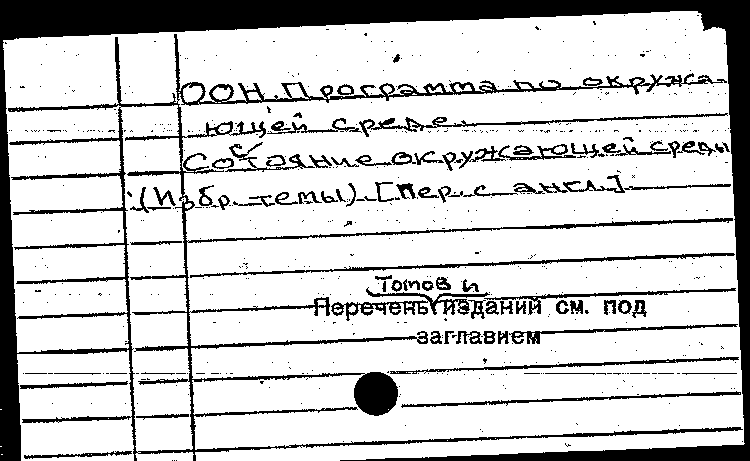 ООН. Программа по окружа-
ющей среде.
Состояние окружающей среды
(Избр. темы). [Пер. с англ.].
Томов и
Перечень изданий см. под
заглавием